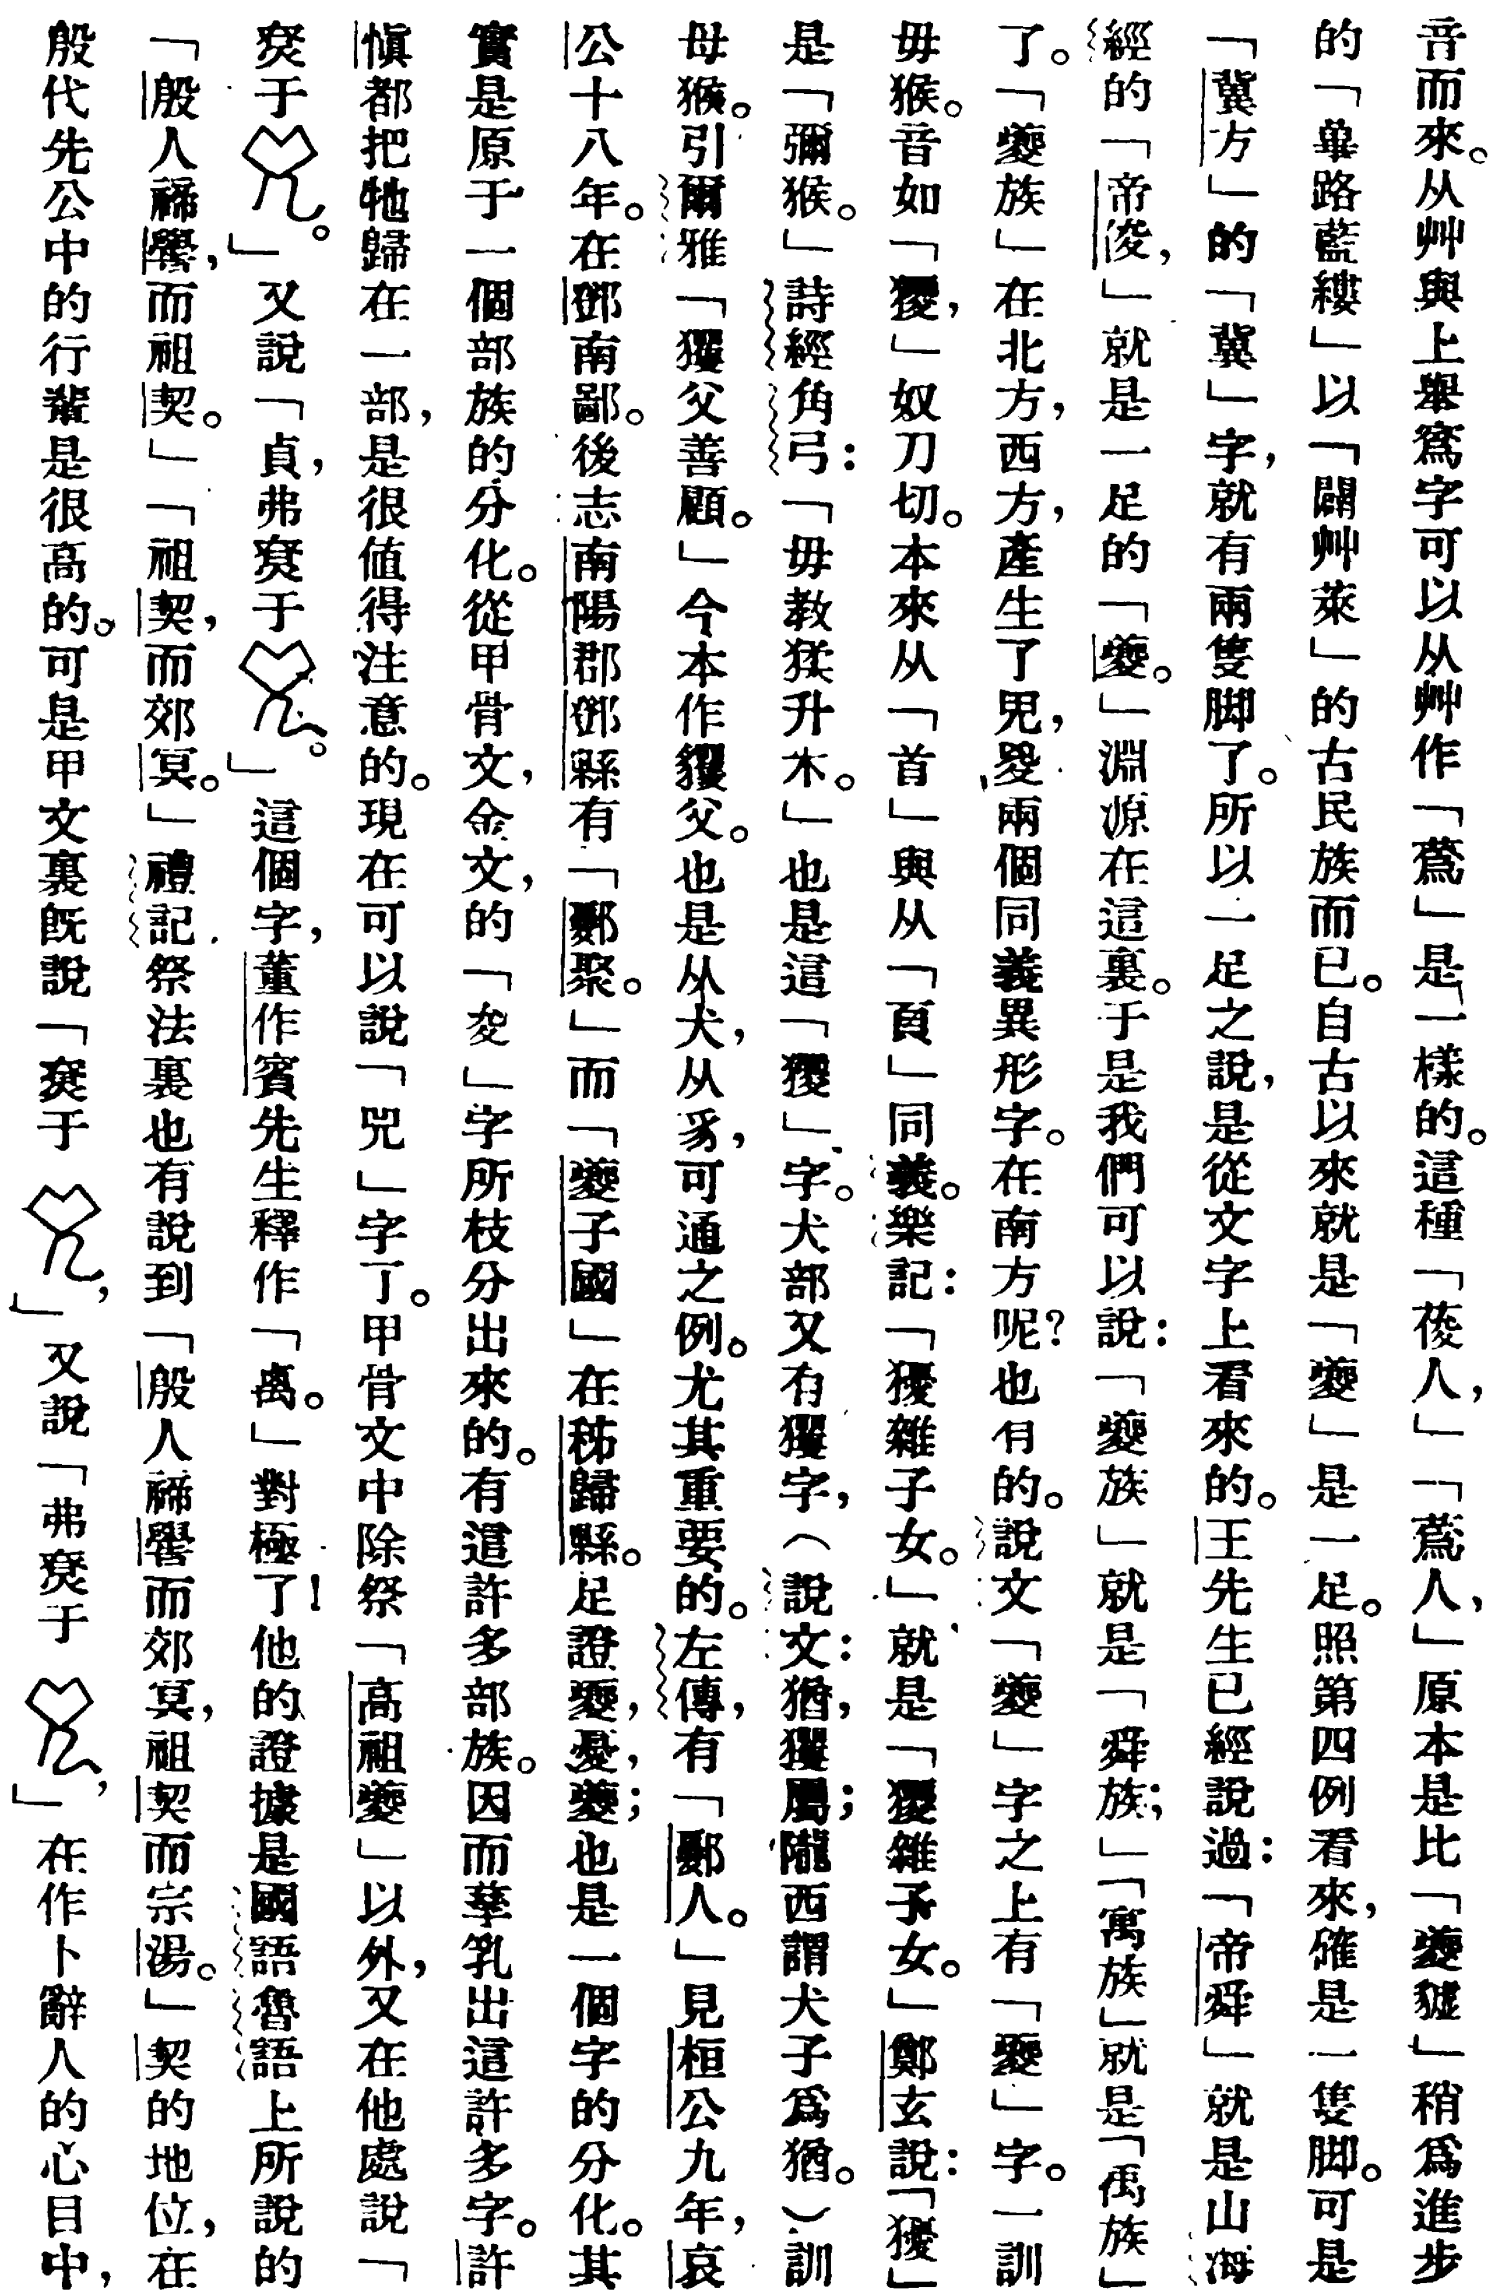 音而來。从艸與上舉寫字可以从艸作「蔿」是一樣的。這種「葰人，」「蔿人，」原本是比「夔魖」稍爲進步
的「蓽路藍縷」以「闢艸萊」的古民族而已。自古以來就是「夔」是一足。照第四例看來，確是一隻脚。可是
「冀方」的「冀」字，就有兩隻脚了。所以一足之說，是從文字上看來的。王先生已經說過：「帝舜」就是山海
經的「帝俊，」就是一足的「夔。」淵源在這裏。于是我們可以說：「夔族」就是「舜族；」「寓族」就是「禹族」
了。「夔族」在北方，西方，產生了兕，夒兩個同義異形字。在南方呢？也有的。說文「夔」字之上有「夒」字。一訓
毋猴。音如「獿，」奴刀切。本來从「首」與从「頁」同義。樂記：「獶雜子女。」就是「獿雜子女。」鄭玄說：「獶」
是「彌猴。」詩經角弓：「毋教猱升木。」也是這「獿」字。犬部又有玃字，（說文：猶，玃屬；隴西謂犬子爲猶。）訓
母猴。引爾雅「玃父善顧。」今本作貜父。也是从犬，从豸，可通之例。尤其重要的。左傳，有「鄾人。」見桓公九年，哀
公十八年。在鄧南鄙。後志南陽郡鄧縣有「鄾聚。」而「夔子國」在秭歸縣。足證夒，憂，夔；也是一個字的分化。其
實是原于一個部族的分化。從甲骨文，金文，的「夋」字所枝分出來的。有這許多部族。因而孳乳出這許多字。許
愼都把牠歸在一部，是很值得注意的。現在可以說「兕」字了。甲骨文中除祭「高祖夔」以外，又在他處說「
寮于。」又說「貞，弗寮于。」這個字，董作賓先生釋作「离。」對極了！他的證據是國語魯語上所說的
「殷人禘嚳，而祖契。」「祖契，而郊冥。」禮記祭法裏也有說到「殷人禘嚳而郊冥，祖契而宗湯。」契的地位，在
殷代先公中的行輩是很高的。可是甲文裏旣說「寮于，」又說「弗寮于，」在作卜辭人的心目中，